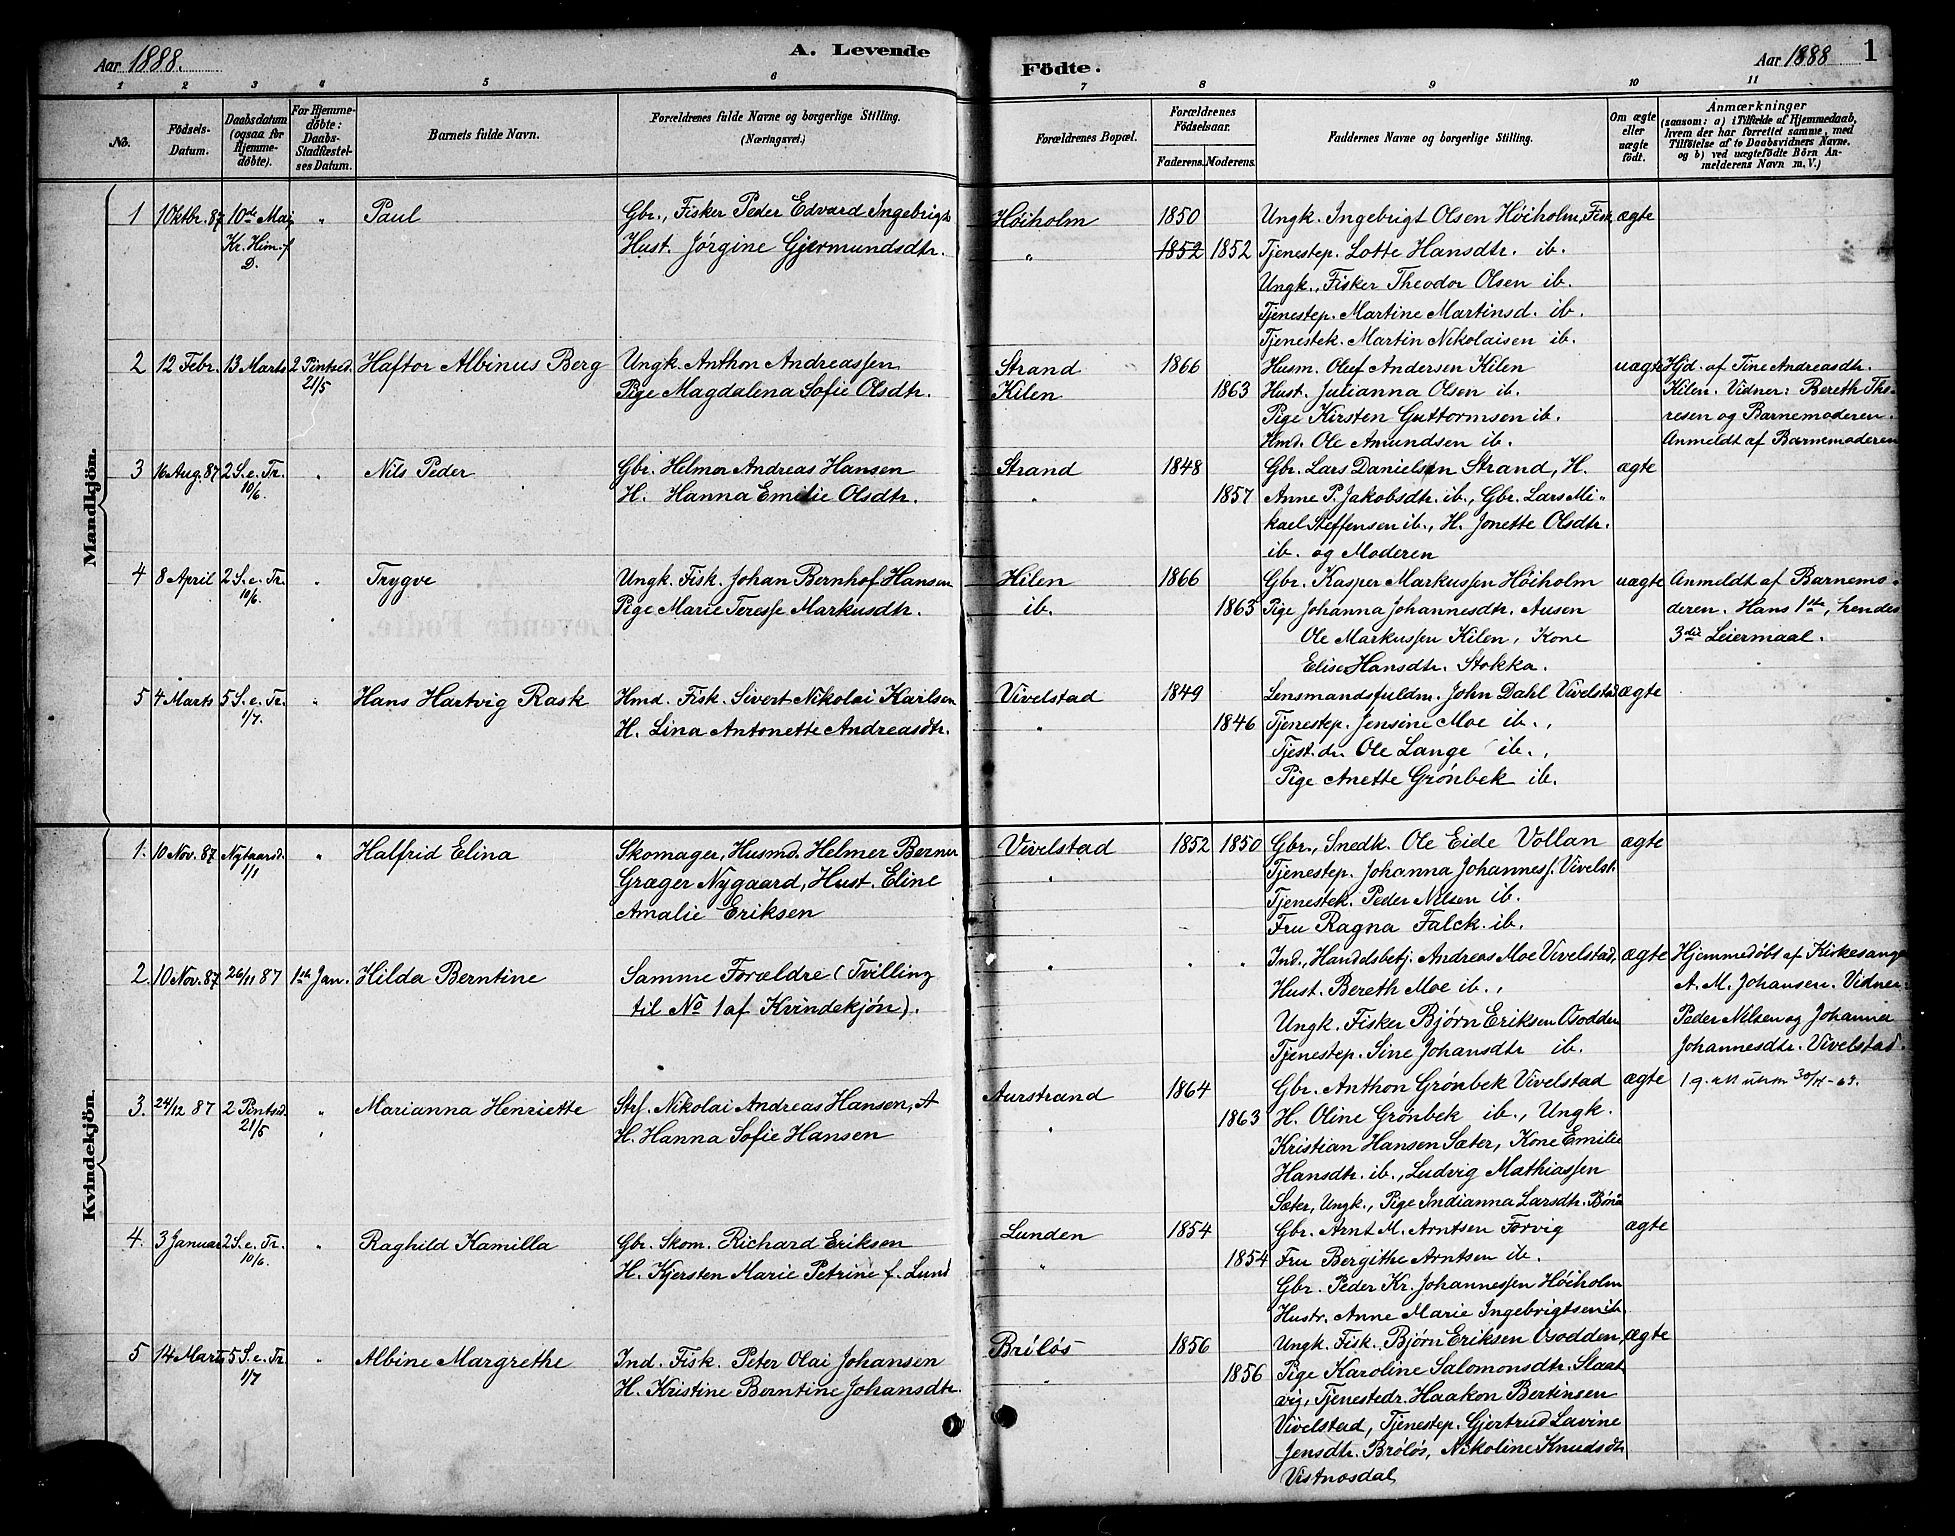 Aar 1888.
A. Levende
Födte.
Aar 1888
1
1 2 3 4 5 6 7 8 9 10 11
No.
Födsels-
Datum.
Daabsdatum
(ogsaa for
Hjemme-
döbte).
For Hjemme-
döbte:
Daabs-
Stadfæstel-
ses Datum.
Barnets fulde Navn.
Forældrenes fulde Navne og borgerlige Stilling.
(Næringsvei.)
Forældrenes Bopæl.
Forældrenes
Födselsaar.
Faderens. Moderens.
Faddernes Navne og borgerlige Stilling.
Om ægte
eller
uægte
födt.
Anmærkninger
(saasom: a) i Tilfælde af Hjemmedaab,
hvem der har forrettet samme, med
Tilföielse af to Daabsvidners Navne,
og b) ved uægtefödte Börn An-
melderens Navn m. V.)
Mandkjön.
1 1 Oktbr. 87 10de Mai " Paul Gbr., Fisker Peder Edvard Ingebrigts Høiholm 1850 Ungk. Ingebrigt Olsen Høiholm, Fisk ægte
Kr. Him. f Hust. Jörgine Gjermundsdtr. " 1852 1852 Tjenestep. Lotte Hansdtr. ib.
D. Ungk., Fisker Theodor Olsen ib.
Tjenestep. Martine Martinsd. ib.
Tjenestek. Martin Nikolaisen ib.
2 12 Febr. 13 Marts 2 Pintsed. Haftor Albinus Berg Ungk. Anthon Andreassen Strand 1866 Husm. Oluf Andersen Kilen uægte Hjd. af Tine Andreasdtr.
21/5 Pige Magdalena Sofie Olsdtr. Kilen 1863 Hust. Julianna Olsen ib. Kilen. Vidner: Bereth Tho-
Pige Kirsten Guttormsen ib. resen og Barnemoderen.
Hmd. Ole Amundsen ib. Anmeldt af Barnemoderen
3 16 Aug. 87 2 S. e. Tr. " Nils Peder Gbr. Helmer Andreas Hansen Strand 1848 Gbr. Lars Danielsen Strand, H. ægte
10/6. H. Hanna Emilie Olsdtr. " 1857 Anne P. Jakobsdtr. ib., Gbr. Lars Mi-
kael Steffensen ib., H. Jonette Olsdtr.
ib. og Moderen
4 8 April 2 S. e. Tr. " Trygve Ungk. Fisk. Johan Bernhof Hansen Hilen 1866 Gbr. Kasper Markussen Høiholm uægte Anmeldt af Barnemo-
10/6. Pige Marie Teresse Markusdtr. ib. 1863 Pige Johanna Johannesdtr. Ausen deren. Hans 1ste, hendes
Ole Markussen Kilen, Kone 3die Leiermaal.
Elise Hansdtr. Stokka.
5 4 Marts 5 S. e. Tr. " Hans Hartvig Rask Hmd. Fisk. Sivert Nikolai Karlsen Vivelstad 1849 Lensmandsfuldm. John Dahl Vivelstad ægte
1/7. H. Lina Antonette Andreasdtr. " 1846 Tjenestep. Jensine Moe ib.,
Tjest. dr. Ole Lange ib.,
Pige Anette Grönbek ib.
Kvindekjön.
1. 10 Nov. 87 Nytaarsd. " Halfrid Elina Skomager, Husmd. Helmer Berner Vivelstad 1852 1850 Gbr., Snedk. Ole Eide Vollan ægte
1/1 Græger Nygaard, Hust. Eline " Tjenestep. Johanna Johannesf. Vivelst.
Amalie Eriksen Tjenestek. Peder Nilsen ib.
Fru Ragna Falck. ib.
2. 10 Nov. 87 26/11 87 1ste Jan. Hilda Berntine Samme Forældre (Tvilling " " " Ind., Handelsbetj. Andreas Moe Vivelstad, ægte Hjemmedøbt af Kirkesanger
til No 1 af Kvindekjön). Hust. Bereth Moe ib., A. M. Johansen. Vidner:
Ungk. Fisker Bjørn Eriksen Osodden Peder Nilsen og Johanna
Tjenestep. Sine Johansdtr ib. Johannesdtr. Vivelstad.
3. 24/12 87 2 Pintsd. " Marianna Henriette Strf. Nikolai Andreas Hansen, A Aurstrand 1864 Gbr. Anthon Grönbek Vivelstad ægte
21/5 H. Hanna Sofie Hansen " 1863 H. Oline Grönbek ib., Ungk.
Kristian Hansen Sæter, Kone Emilie
Hansdtr. ib., Ludvig Mathiassen
Sæter, Ungk., Pige Indianna Larsdtr.
4. 3 Januar 2 S. e. Tr. " Raghild Kamilla Gbr. Skom. Richard Eriksen Lunden 1854 Gbr. Arnt M. Arntsen Forvig ægte
10/6. H. Kjersten Marie Petrine f. Lund " 1854 Fru Bergithe Arntsen ib.
Gbr. Peder Kr. Johannessen Høiholm
Hustr. Anne Marie Ingebrigtsen ib.
5 14 Marts 5 S. e. Tr. " Albine Margrethe Ind. Fisk. Peter Olai Johansen Bröløs 1856 Ungk. Fisk. Bjørn Eriksen Osodden, ægte
1/7 H. Kristine Berntine Johansdtr. " 1856 Pige Karoline Salomonsdtr. Slaat
vig, Tjenestedr. Haakon Bertinsen
Vivelstad, Tjenestep. Gjertrud Lavine
Jensdtr. Bröløs, Nikoline Knudsdtr
Vistnesdal